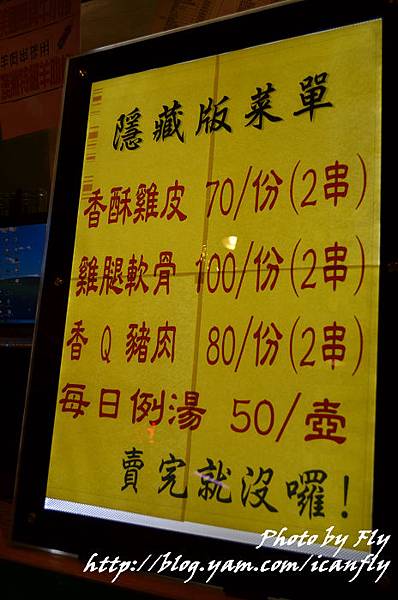 隱藏版菜單
香酥雞皮 70/份(2串)
雞腿軟骨 100/份(2串)
香 Q 豬肉 80/份(2串)
每日例湯 50/壺
賣完就沒囉!
Photo by Fly
http://blog.yam.com/icanfly